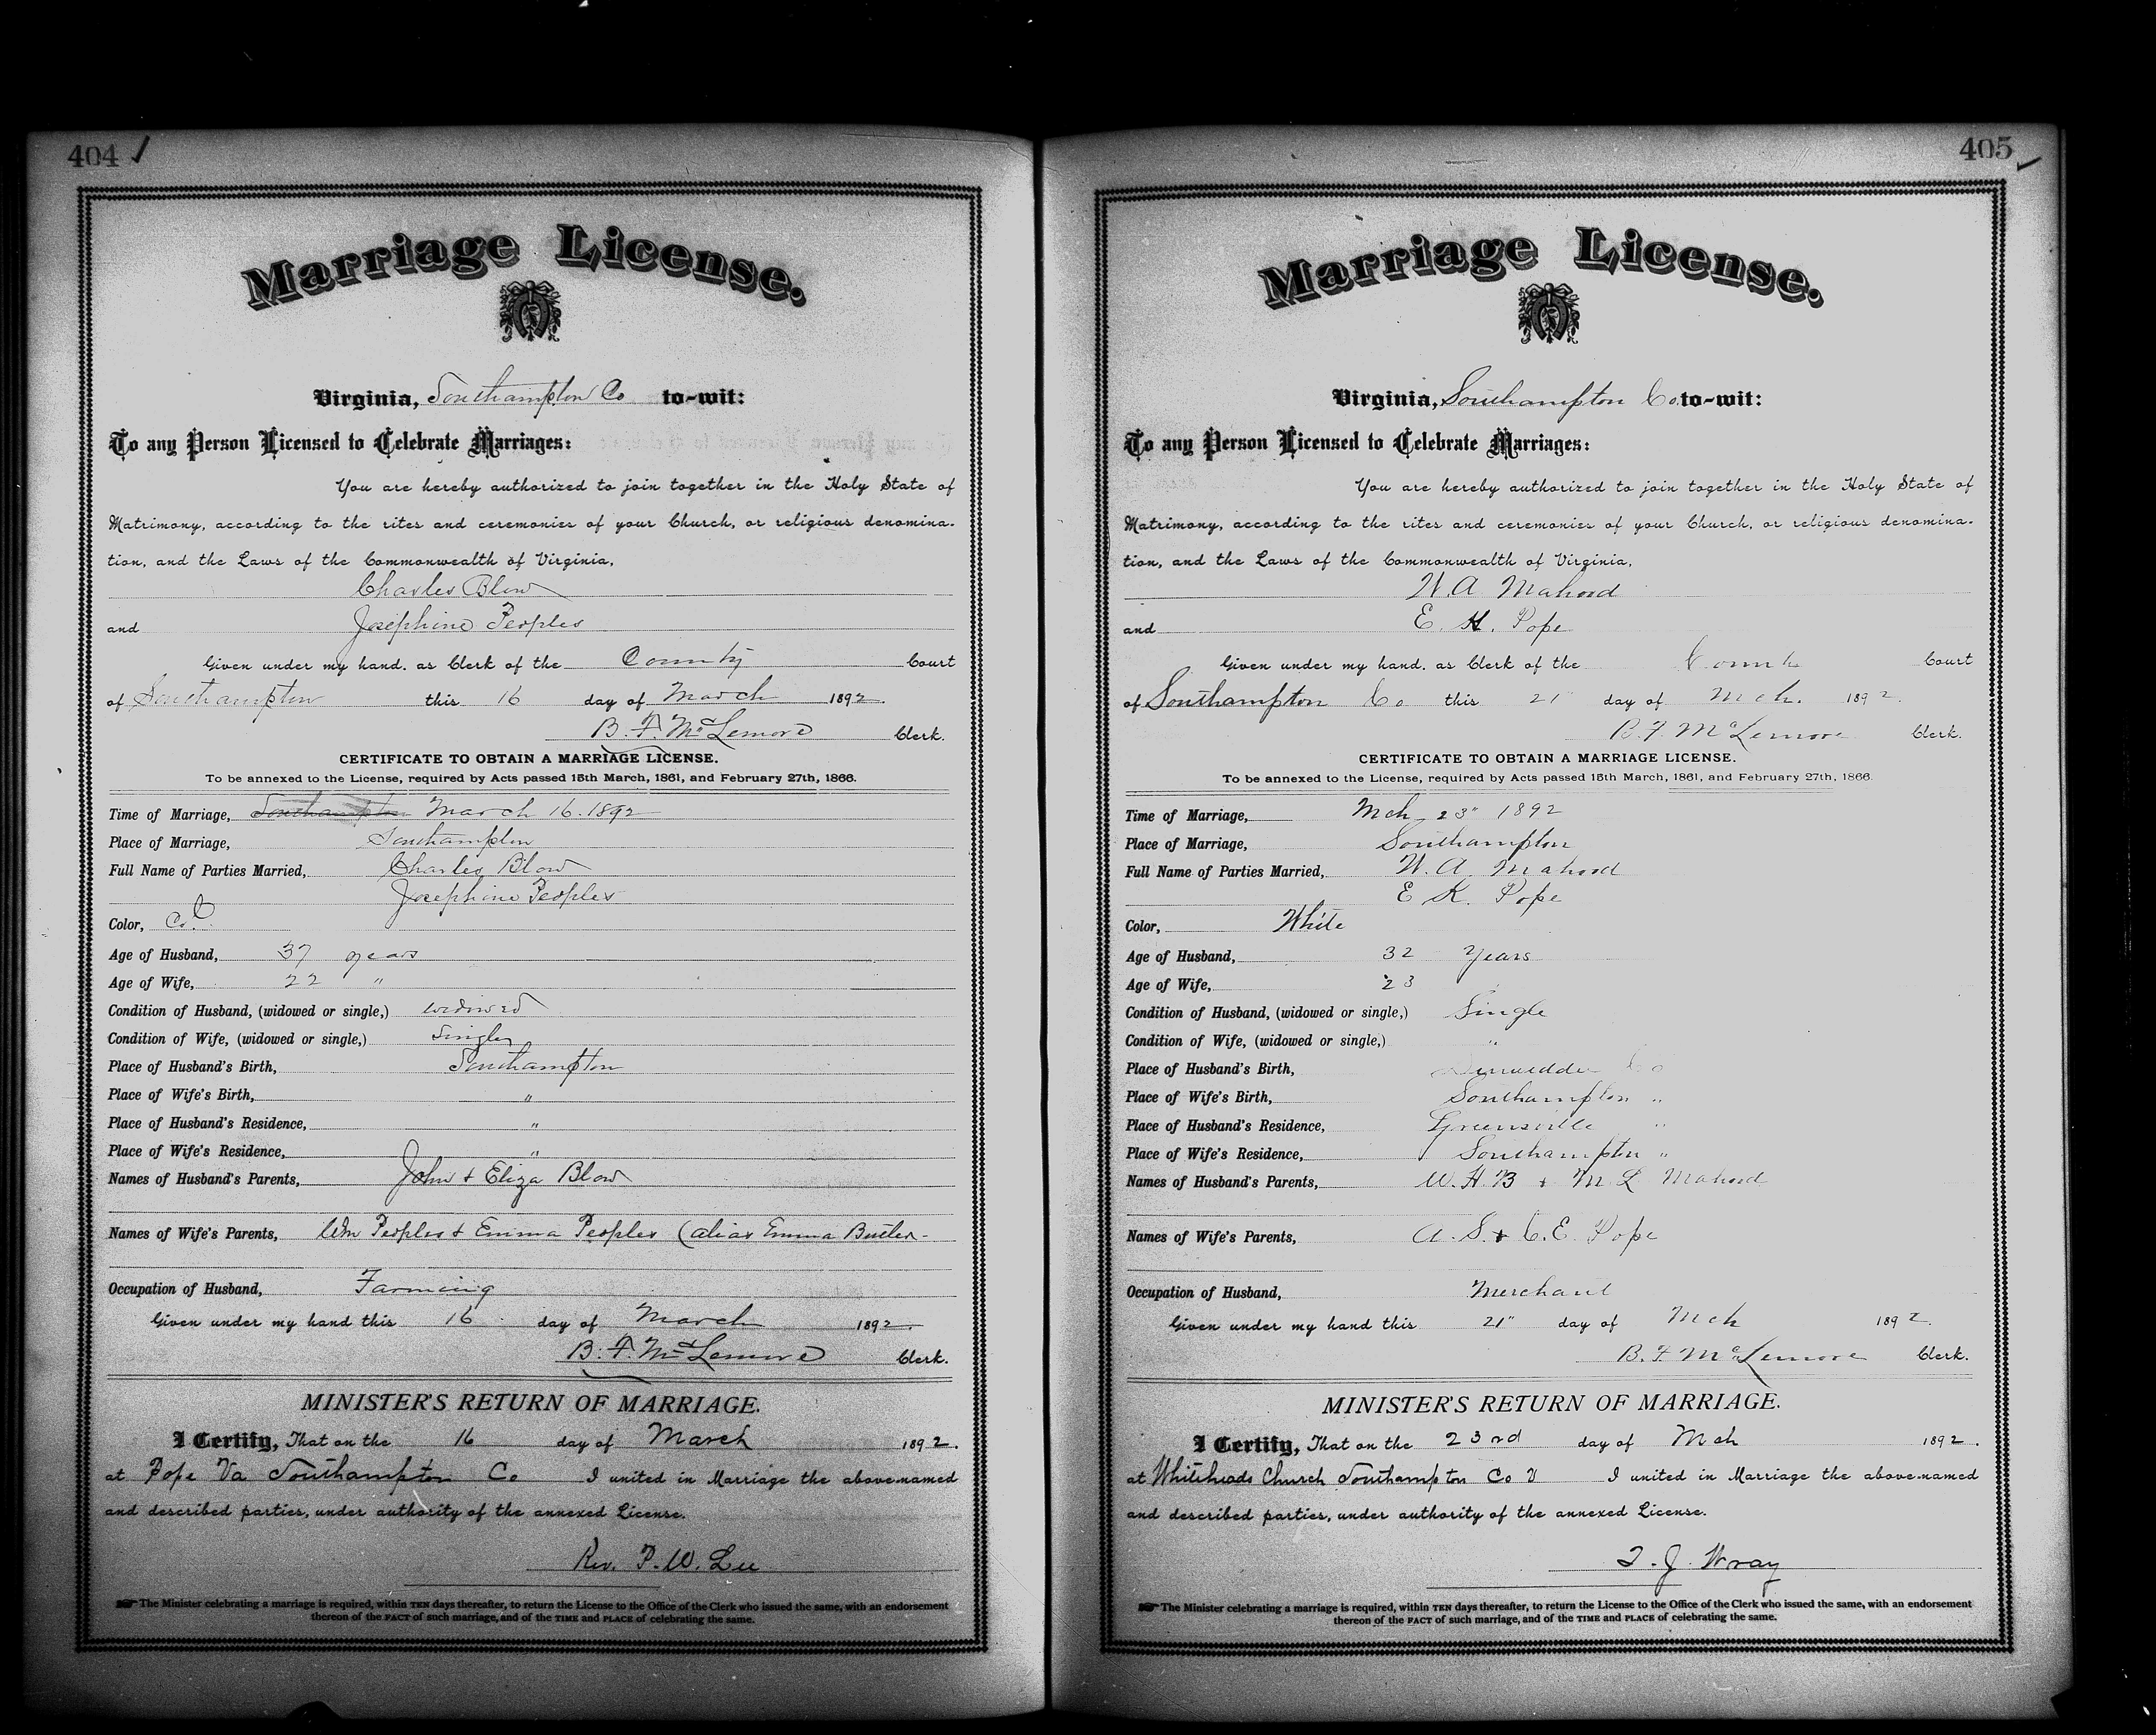 404
Marriage License.
Virginia, Southampton Co to-wit:
To any Person Licensed to Celebrate Marriages:
You are hereby authorized to join together in the Holy State of
Matrimony, according to the rites and ceremonies of your Church, or religious denomina-
tion, and the Laws of the Commonwealth of Virginia,
Charles Blow
and Josephine Peoples
Given under my hand, as Clerk of the County Court
of Southampton this 16 day of March 1892.
B. F. McLemore Clerk.
CERTIFICATE TO OBTAIN A MARRIAGE LICENSE.
To be annexed to the License, required by Acts passed 15th March, 1861, and February 27th, 1866.
Time of Marriage, Southampton March 16. 1892
Place of Marriage, Southampton
Full Name of Parties Married, Charles Blow
Josephine Peoples
Color, Col
Age of Husband, 37 years
Age of Wife, 22 "
Condition of Husband, (widowed or single,) widowed
Condition of Wife, (widowed or single,) Single
Place of Husband's Birth, Southampton
Place of Wife's Birth, "
Place of Husband's Residence, "
Place of Wife's Residence, "
Names of Husband's Parents, John & Eliza Blow
Names of Wife's Parents, Wm Peoples & Emma Peoples (alias Emma Butler-
Occupation of Husband, Farming
Given under my hand this 16 day of March 1892.
B. F. McLemore Clerk.
MINISTER'S RETURN OF MARRIAGE.
I Certify, That on the 16 day of March 1892.
at Pope Va Southampton Co I united in Marriage the above-named
and described parties, under authority of the annexed License.
Rev. P. W. Lee
The Minister celebrating a marriage is required, within TEN days thereafter, to return the License to the Office of the Clerk who issued the same, with an endorsement
thereof of the FACT of such marriage, and of the TIME and PLACE of celebrating the same.
405
Marriage License.
Virginia, Southampton Co. to-wit:
To any Person Licensed to Celebrate Marriages:
You are hereby authorized to join together in the Holy State of
Matrimony, according to the rites and ceremonies of your Church, or religious denomina-
tion, and the Laws of the Commonwealth of Virginia,
W. A Mahood
and E. K. Pope
Given under my hand, as Clerk of the County Court
of Southampton Co this 21" day of Mch. 1892.
B. F McLemore Clerk.
CERTIFICATE TO OBTAIN A MARRIAGE LICENSE.
To be annexed to the License, required by Acts passed 15th March, 1861, and February 27th, 1866.
Time of Marriage, Mch 23" 1892
Place of Marriage, Southampton
Full Name of Parties Married, W. A. Mahood
E K. Pope
Color, White
Age of Husband, 32 Years
Age of Wife, 23
Condition of Husband, (widowed or single,) Single
Condition of Wife, (widowed or single,) "
Place of Husband's Birth, Dinwiddie Co
Place of Wife's Birth, Southampton "
Place of Husband's Residence, Greensville "
Place of Wife's Residence, Southampton "
Names of Husband's Parents, W. H. B & M L Mahood
Names of Wife's Parents, A. S. & C. E. Pope
Occupation of Husband, Merchant
Given under my hand this 21" day of Mch 1892.
B. F McLemore Clerk.
MINISTER'S RETURN OF MARRIAGE.
I Certify, That on the 23rd day of Mch 1892.
at Whiteheads Church Southampton Co V I united in Marriage the above-named
and described parties, under authority of the annexed License.
J. Wray
The Minister celebrating a marriage is required, within TEN days thereafter, to return the License to the Office of the Clerk who issued the same, with an endorsement
thereof of the FACT of such marriage, and of the TIME and PLACE of celebrating the same.